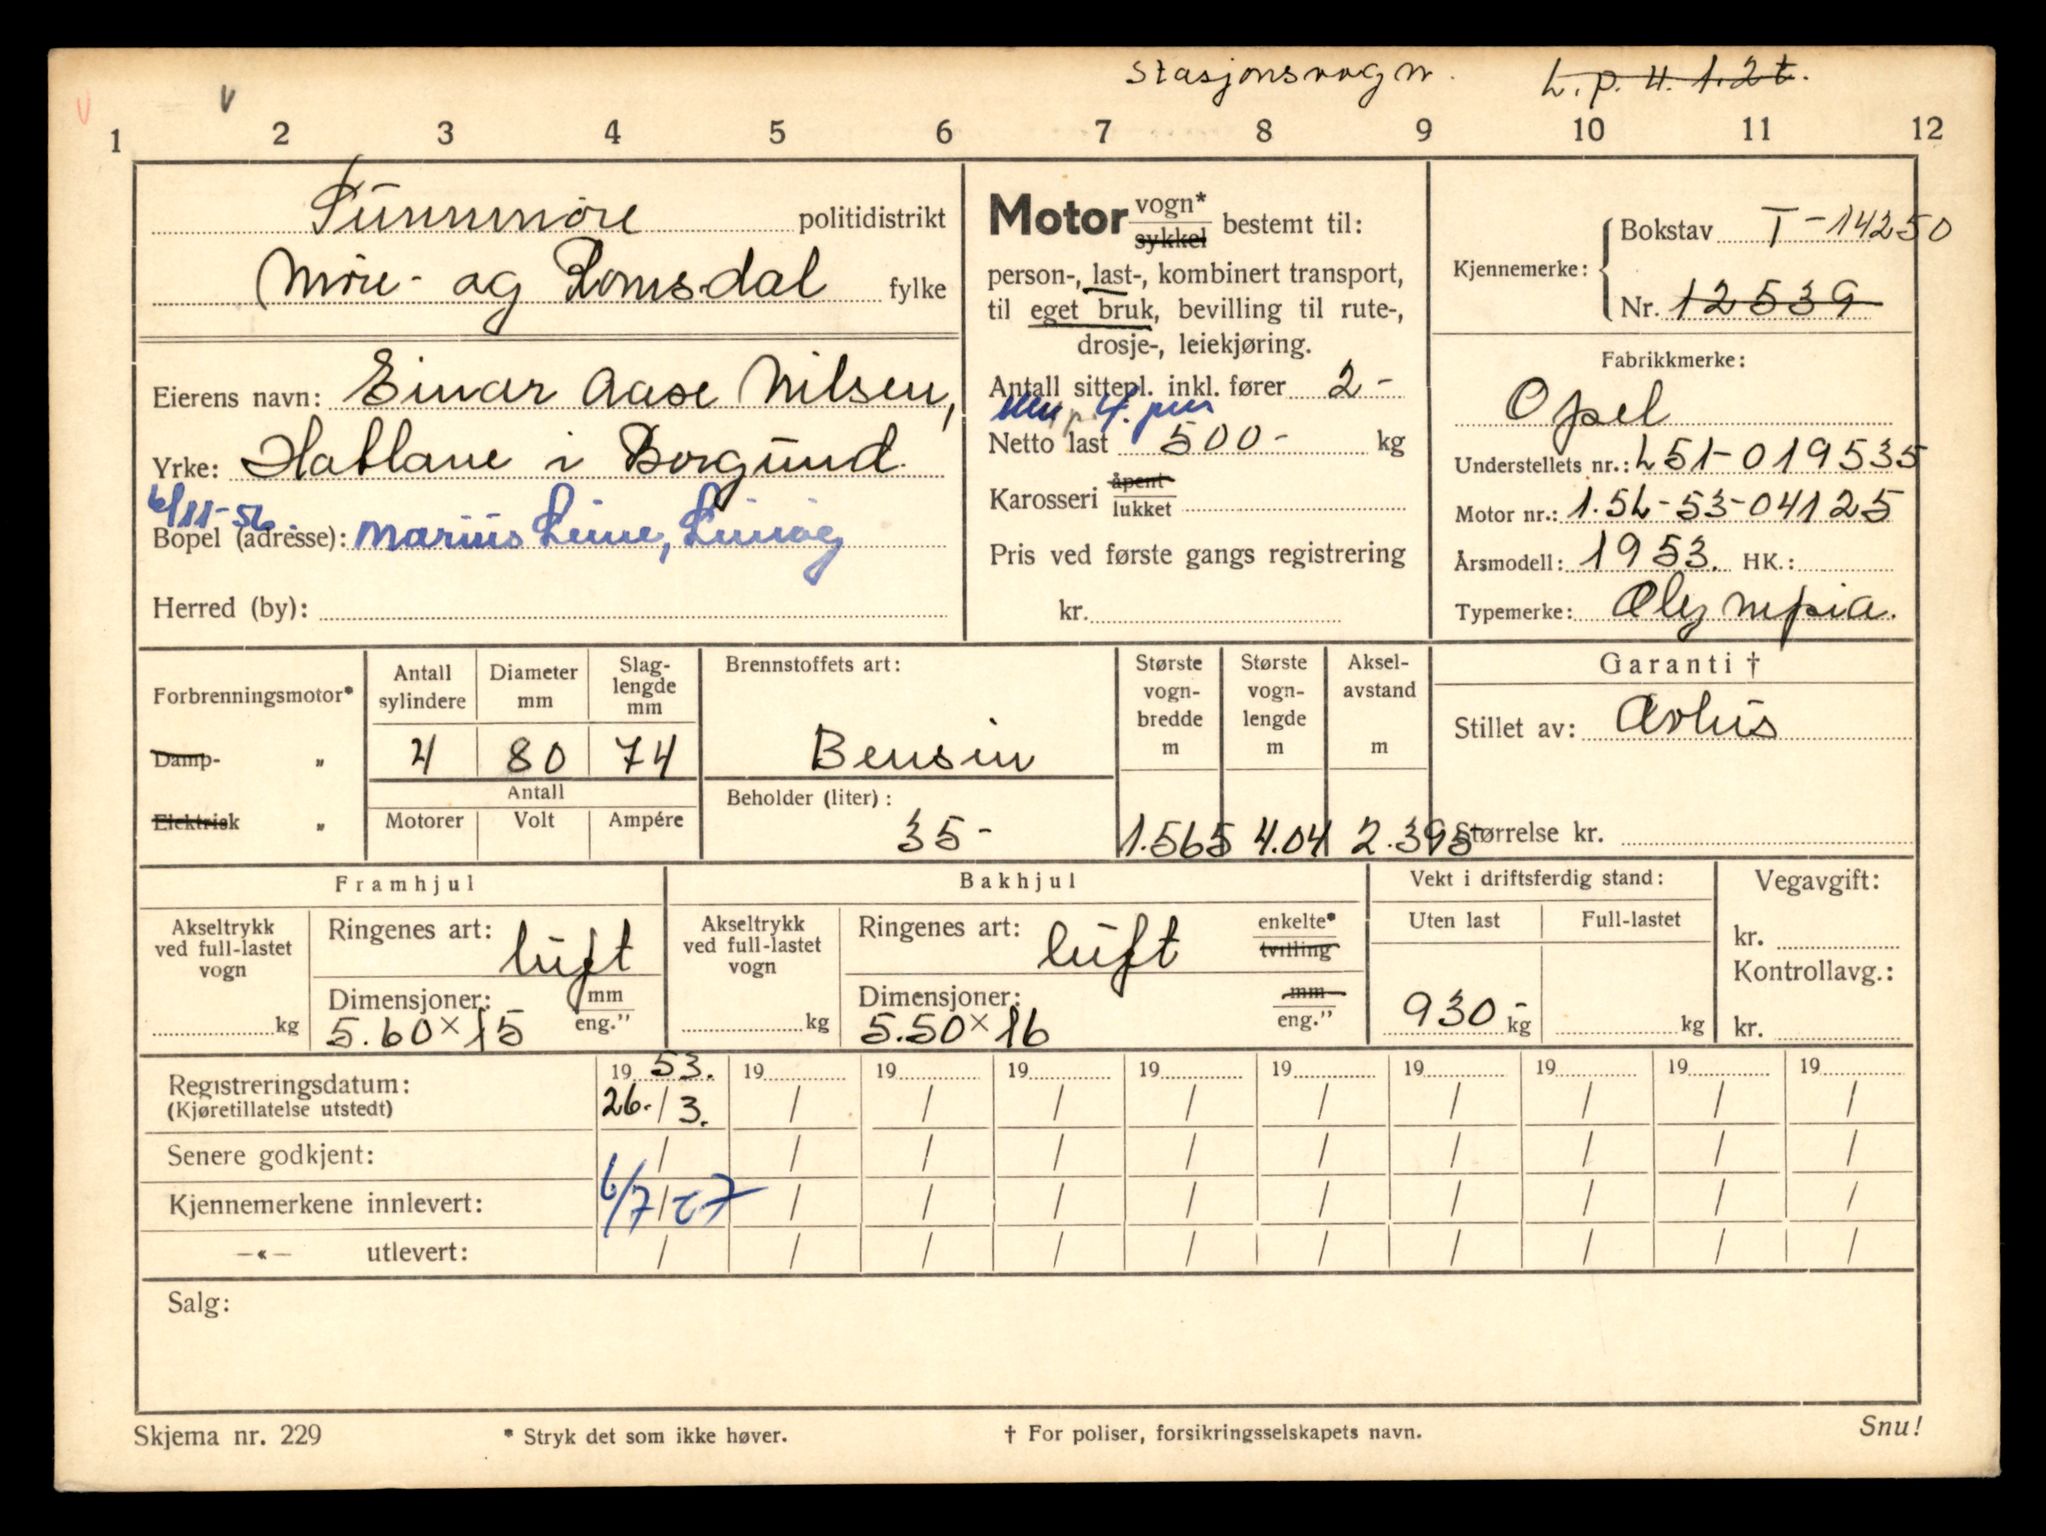 Stasjonsvogn. L.p.4.1.2t.
1 2 3 4 5 6 7 8 9 10 11 12
Sunnmøre politidistrikt
Møre- og Romsdal fylke
Eierens navn: Einar Aase Nilsen,
Yrke: Hatlane i Borgund.
6/11-56.
Bopel (adresse): Marius Leine,
Herred (by):
Motor vogn* sykkel bestemt til:
person-, last-, kombinert transport,
til eget bruk, bevilling til rute-,
drosje-, leiekjøring.
Antall sittepl. inkl. fører 2-
4. pers
Netto last 500- kg
Karosseri åpent lukket
Pris ved første gangs registrering
kr.
Kjennemerke: Bokstav T-14250
Nr. 12539
Fabrikkmerke:
Opel
Understellets nr.: L51-019535
Motor nr.: 1.5L-53-04125
Årsmodell: 1953. HK.:
Typemerke: Olympia.
Forbrenningsmotor*
Damp- „
Elektrisk „
Antall sylindere
4
Diameter mm
80
Slag-
lengde
mm
74
Antall
Motorer Volt Ampére
Brennstoffets art:
Bensin
Beholder (liter):
35-
Største
vogn-
bredde
m
1.565
Største
vogn-
lengde
m
4.04
Aksel-
avstand
m
2.395
Garanti †
Stillet av:
Størrelse kr.
Framhjul
Akseltrykk
ved full-lastet
vogn
kg
Ringenes art: luft
Dimensjoner: mm
5.60×15 eng.”
Bakhjul
Akseltrykk
ved full-lastet
vogn
kg
Ringenes art: luft enkelte* tvilling
Dimensjoner: mm
5.50×16 eng.”
Vekt i driftsferdig stand:
Uten last Full-lastet
930- kg kg
Vegavgift:
kr.
Kontrollavg.:
kr.
Registreringsdatum: 19 53. 19 19 19 19 19 19 19 19 19
(Kjøretillatelse utstedt) 26./3. / / / / / / / / /
Senere godkjent: / / / / / / / / / /
Kjennemerkene innlevert: 6/7 57 / / / / / / / / /
—«— utlevert: / / / / / / / / / /
Salg:
Skjema nr. 229 * Stryk det som ikke høver. † For poliser, forsikringsselskapets navn. Snu!